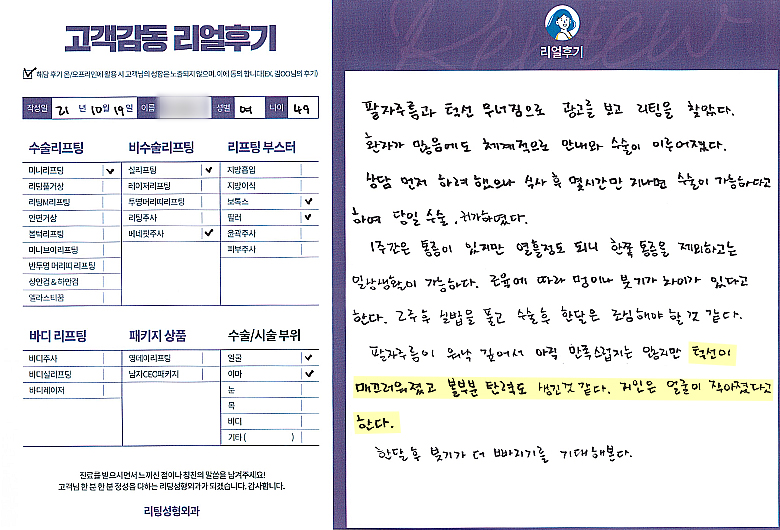 고객감동 리얼후기
해당 후기 온/오프라인에 활용 시 고객님의 성함은 노출되지 않으며, 이에 동의 합니다(EX. 김OO님의 후기)
작성일 21 년 10 월 19 일 이름 성별 여 나이 49
수술리프팅 비수술리프팅 리프팅 부스터
미니리프팅 실리프팅 지방흡입
리팅풀거상 레이저리프팅 지방이식
리팅M리프팅 투명머리띠리프팅 보톡스
안면거상 리팅주사 필러
볼턱리프팅 베네핏주사 윤곽주사
미니브이리프팅 피부주사
반투명 머리띠 리프팅
상안검 & 하안검
엘라스티꿈
바디 리프팅 패키지 상품 수술/시술 부위
바디주사 영데이리프팅 얼굴
바디실리프팅 남자CEO패키지 이마
바디레이저 눈
목
바디
기타 ( )
진료를 받으시면서 느끼신 점이나 칭찬의 말씀을 남겨주세요!
고객님 한 분 한 분 정성을 다하는 리팅성형외과가 되겠습니다. 감사합니다.
리팅성형외과
Review
리얼후기
팔자주름과 턱선 무너짐으로 광고를 보고 리팅을 찾았다.
환자가 많음에도 체계적으로 안내와 수술이 이루어졌다.
상담 먼저 하려 했으나 식사 후 몇시간만 지나면 수술이 가능하다고
하여 당일 수술, 귀가하였다.
1주간은 통증이 있지만 열흘정도 되니 한쪽 통증을 제외하고는
일상생활이 가능하다. 조율에 따라 멍이나 붓기가 차이가 있다고
한다. 2주후 실밥을 풀고 수술후 한달은 조심해야 할 것 같다.
팔자주름이 워낙 깊어서 아직 만족스럽지는 않지만 턱선이
매끄러워졌고 볼부분 탄력도 생긴것 같다. 지인은 얼굴이 작아졌다고
한다.
한달 후 붓기가 더 빠지기를 기대해본다.